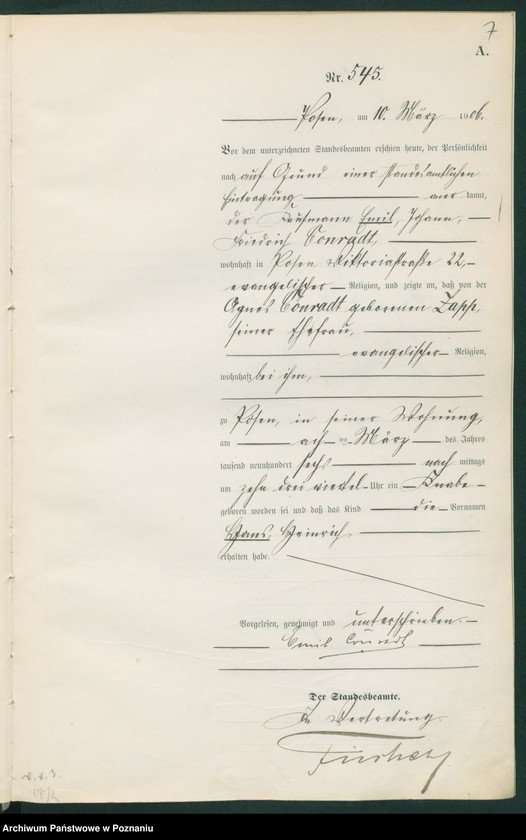 7
A.
Nr. 545.
Posen, am 10. März 1906.
Vor dem unterzeichneten Standesbeamten erschien heute, der Persönlichkeit
nach auf Grund einer standesamtlichen
Eintragung anerkannt,
der Kaufmann Emil, Johann,
Friedrich Conradt,
wohnhaft in Posen Viktoriastraße 22,
evangelischer Religion, und zeigte an, daß von der
Agnes Conradt geborenen Zapp,
seiner Ehefrau,
evangelischer Religion,
wohnhaft bei ihm,
zu Posen, in seiner Wohnung,
am ach ten März des Jahres
tausend neunhundert sechs nach mittags
um zehn drei viertel Uhr ein Knabe
geboren worden sei und daß das Kind die Vornamen
Hans, Heinrich
erhalten habe.
Vorgelesen, genehmigt und unterschrieben.
Emil Conradt
Der Standesbeamte.
In Vertretung.
Archiwum Państwowe w Poznaniu